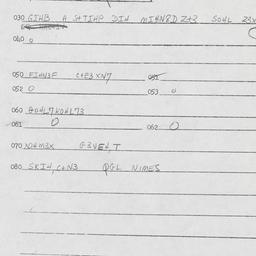 030 GIHB A S+TIHP DIH MIHNBD Z+2 SOHL
040 0
050 FIHN3F C+E3XN7 051
052 0 053 0
060 BOHL7KOHL73
061 0 062 0
070 NHM3X G3VEH,T
080 SKIH,C+N3 QGL NIMES